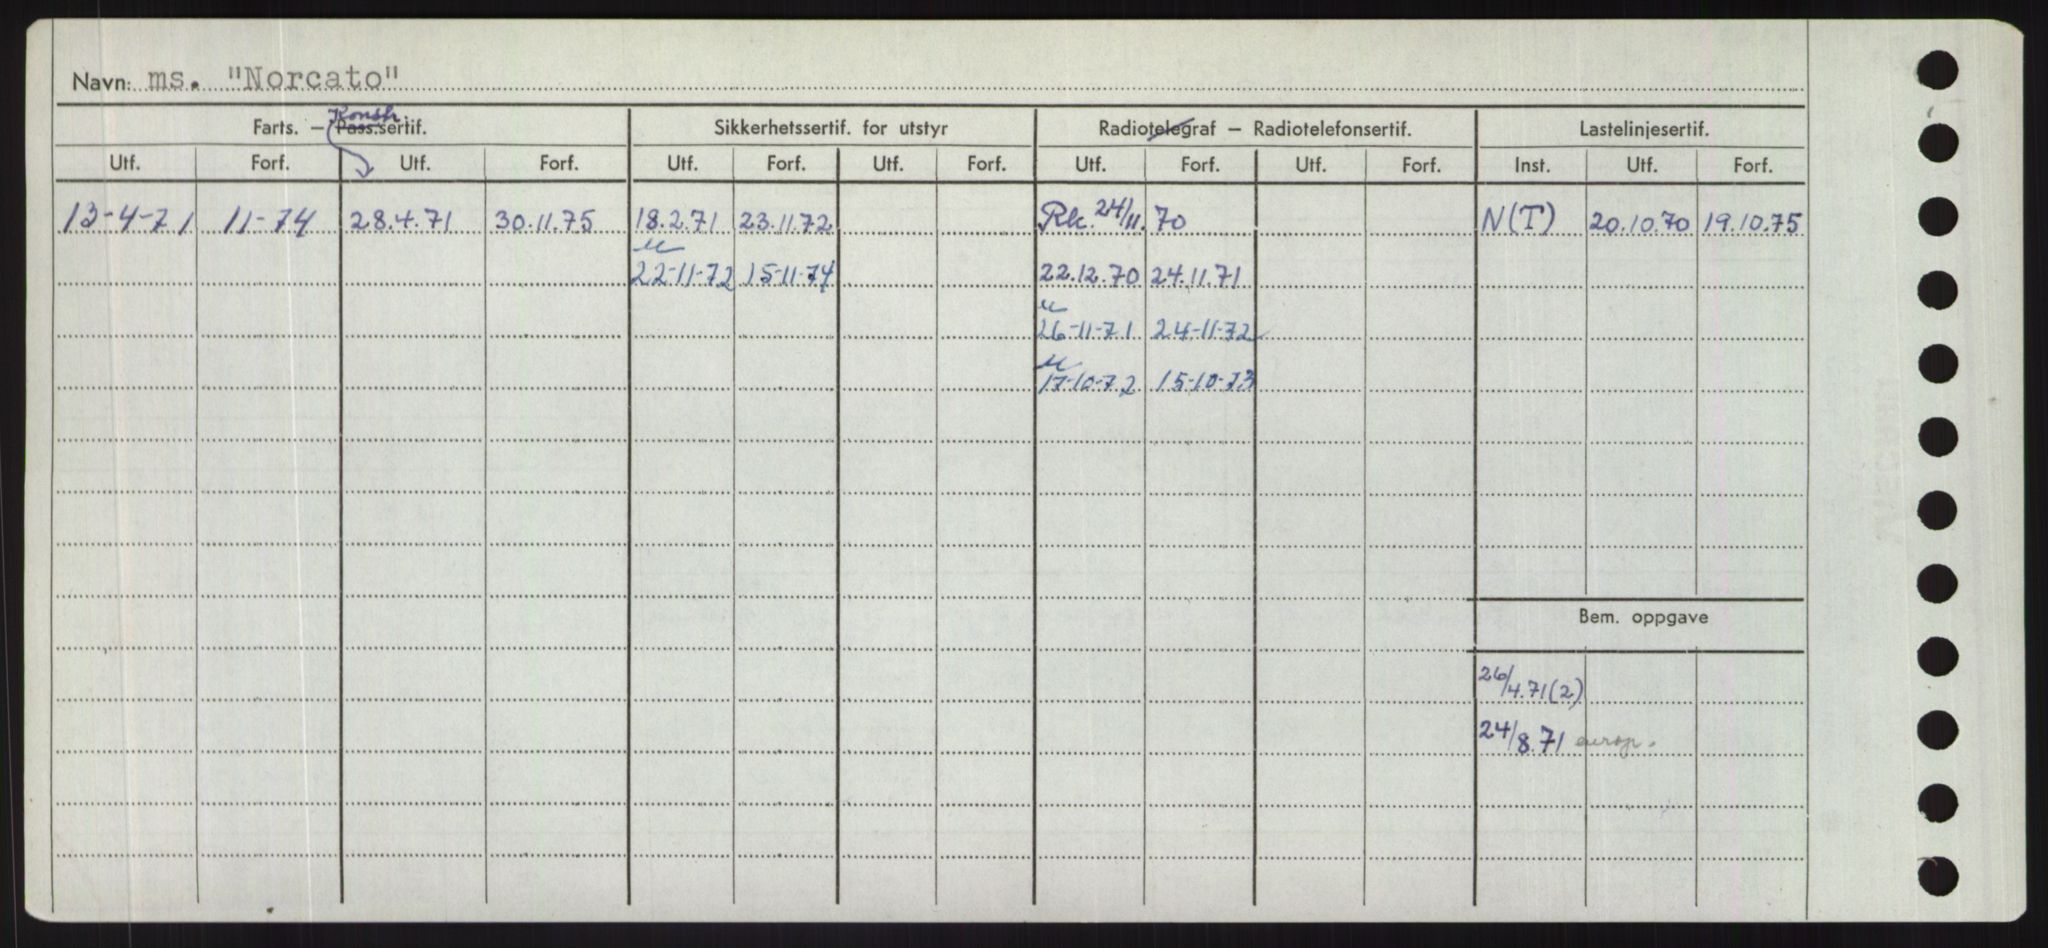 Navn: ms. "Norcato"
Konstr.
Farts. — Pass.sertif. Sikkerhetssertif. for utstyr Radiotelegraf — Radiotelefonsertif. Lastelinjesertif.
Utf. Forf. Utf. Forf. Utf. Forf. Utf. Forf. Utf. Forf. Utf. Forf. Inst. Utf. Forf.
13-4-71 11-74 28.4.71 30.11.75 18.2.71 23.11.72 Rk. 24/11.70 N(T) 20.10.70 19.10.75
22-11-72 15-11-74 22.12.70 24.11.71
26-11-71 24-11-72
17-10-72 15-10-73
Bem. oppgave
26/4.71(2)
24/8.71 europ.